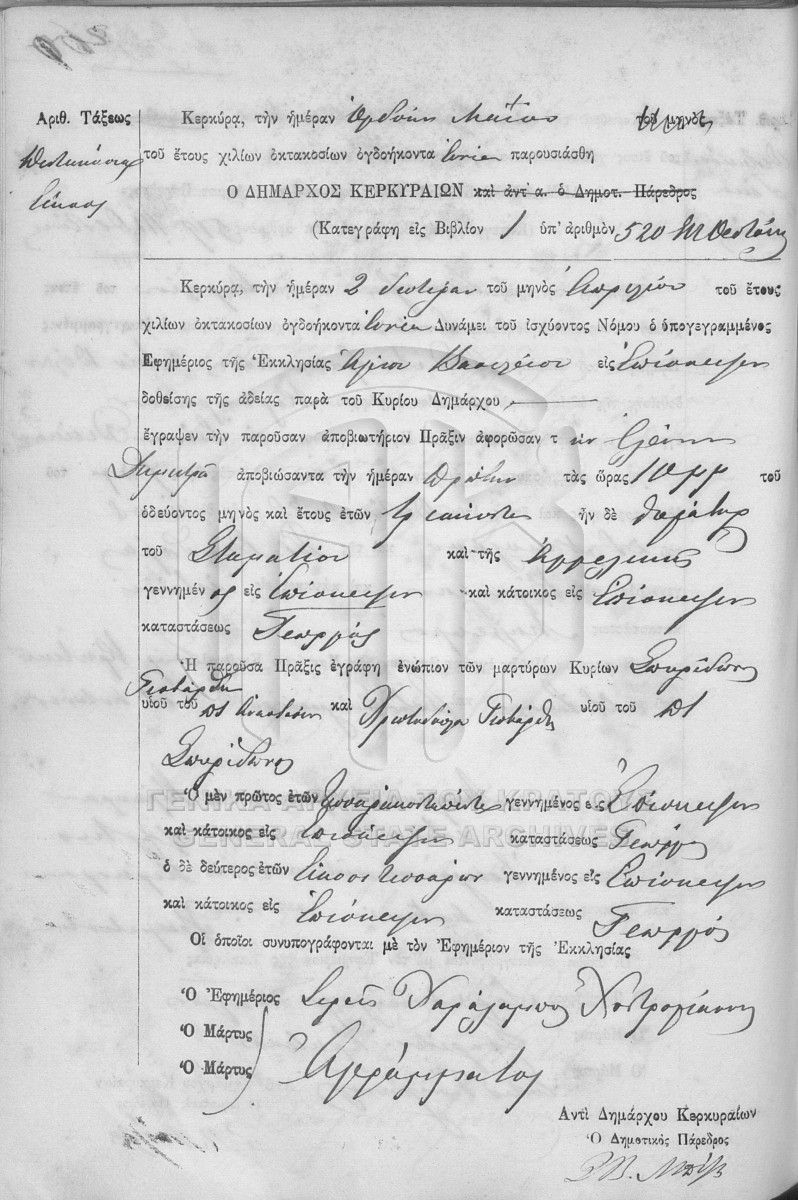 Ἀριθ. Τάξεως
Πεντακόσια
εἴκοσι
Κερκύρᾳ, τὴν ἡμέραν Μαΐου τοῦ μηνὸς
τοῦ ἔτους χιλίων ὀκτακοσίων ὀγδοήκοντα ἐννέα παρουσιάσθη
Ο ΔΗΜΑΡΧΟΣ ΚΕΡΚΥΡΑΙΩΝ καὶ ἀντ' α. ὁ Δημοτ. Πάρεδρος
(Κατεγράφη εἰς Βιβλίον 1 ὑπ' ἀριθμὸν 520
Κερκύρᾳ, τὴν ἡμέραν 2 δευτέραν τοῦ μηνὸς Ἀπριλίου τοῦ ἔτους
χιλίων ὀκτακοσίων ὀγδοήκοντα ἐννέα Δυνάμει τοῦ ἰσχύοντος Νόμου ὁ ὑπογεγραμμένος
Ἐφημέριος τῆς Ἐκκλησίας Ἁγίου Βασιλείου εἰς Ἐπίσκεψιν
δοθείσης τῆς ἀδείας παρὰ τοῦ Κυρίου Δημάρχου
ἔγραψεν τὴν παροῦσαν ἀποβιωτήριον Πρᾶξιν ἀφορῶσαν τ ὴν Ἑλένην
ἀποβιώσαντα τὴν ἡμέραν πρώτην τὰς ὥρας 10 μμ τοῦ
ὁδεύοντος μηνὸς καὶ ἔτους ἐτῶν ἦν δὲ θυγάτηρ
τοῦ Σταματίου καὶ τῆς Ἀγγελικῆς
γεννημέν ος εἰς Ἐπίσκεψιν καὶ κάτοικος εἰς Ἐπίσκεψιν
καταστάσεως Γεωργός
Ἡ παροῦσα Πρᾶξις ἐγράφη ἐνώπιον τῶν μαρτύρων Κυρίων Σπυρίδωνος
υἱοῦ τοῦ ποτὲ καὶ υἱοῦ τοῦ ποτὲ
Σπυρίδωνος
Ὁ μὲν πρῶτος ἐτῶν τεσσαρακονταπέντε γεννημένος εἰς Ἐπίσκεψιν
καὶ κάτοικος εἰς Ἐπίσκεψιν καταστάσεως Γεωργός
ὁ δὲ δεύτερος ἐτῶν εἴκοσι τεσσάρων γεννημένος εἰς Ἐπίσκεψιν
καὶ κάτοικος εἰς Ἐπίσκεψιν καταστάσεως Γεωργός
Οἱ ὁποῖοι συνυπογράφονται μὲ τὸν Ἐφημέριον τῆς Ἐκκλησίας
Ὁ Ἐφημέριος Ἱερεὺς Χαράλαμπος
Ὁ Μάρτυς
Ὁ Μάρτυς Ἀγράμματος
Ἀντὶ Δημάρχου Κερκυραίων
Ὁ Δημοτικὸς Πάρεδρος
ΓΕΝΙΚΑ ΑΡΧΕΙΑ ΤΟΥ ΚΡΑΤΟΥΣ
GENERAL STATE ARCHIVES